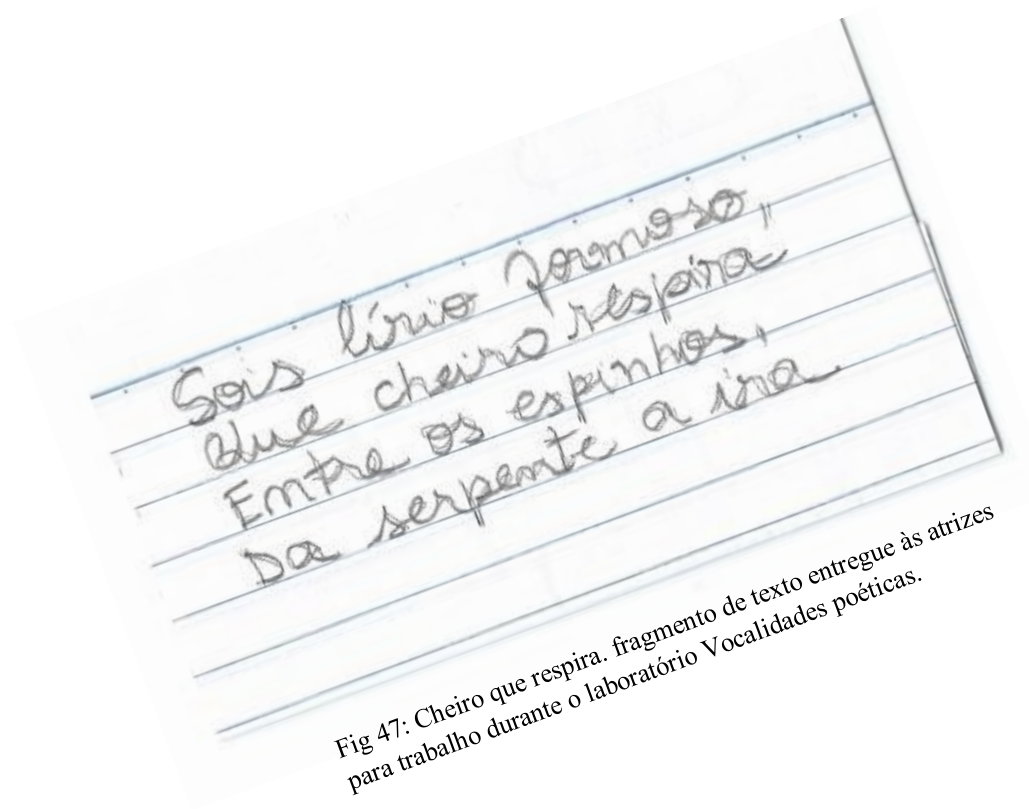 Sois lírio formoso,
Que cheiro respira
Entre os espinhos,
Da serpente a ira
Fig 47: Cheiro que respira. fragmento de texto entregue às atrizes
para trabalho durante o laboratório Vocalidades poéticas.